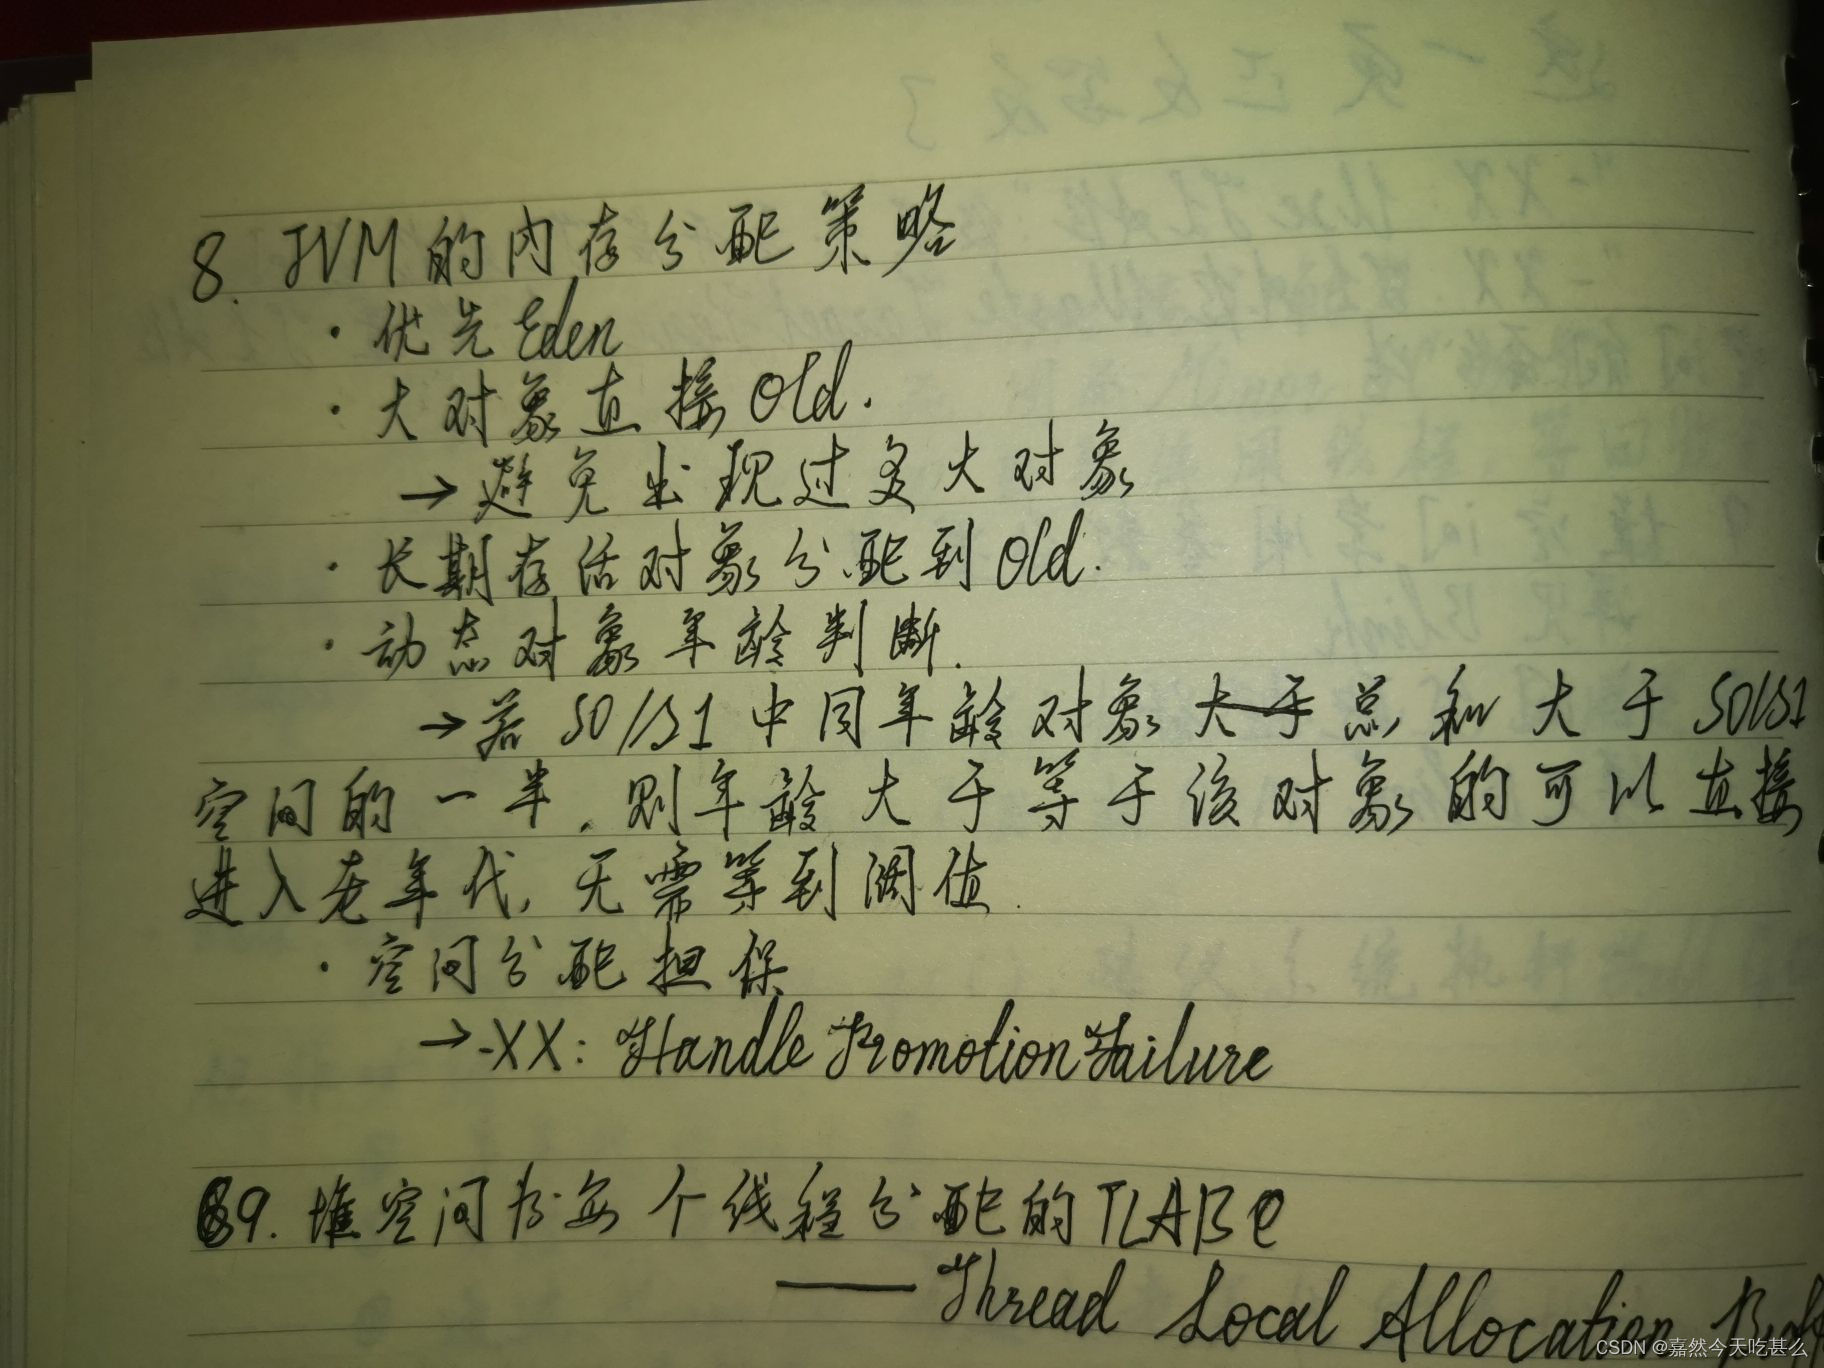 8. JVM的内存分配策略
· 优先Eden
· 大对象直接Old.
→避免出现过多大对象
· 长期存活对象分配到Old.
· 动态对象年龄判断.
→若S0/S1中同年龄对象大于总和大于S0/S1
空间的一半,则年龄大于等于该对象的可以直接
进入老年代,无需等到阈值.
· 空间分配担保
→-XX: HandlePromotionFailure
9. 堆空间为每个线程分配的TLAB
——Thread Local Allocation
CSDN @嘉然今天吃甚么